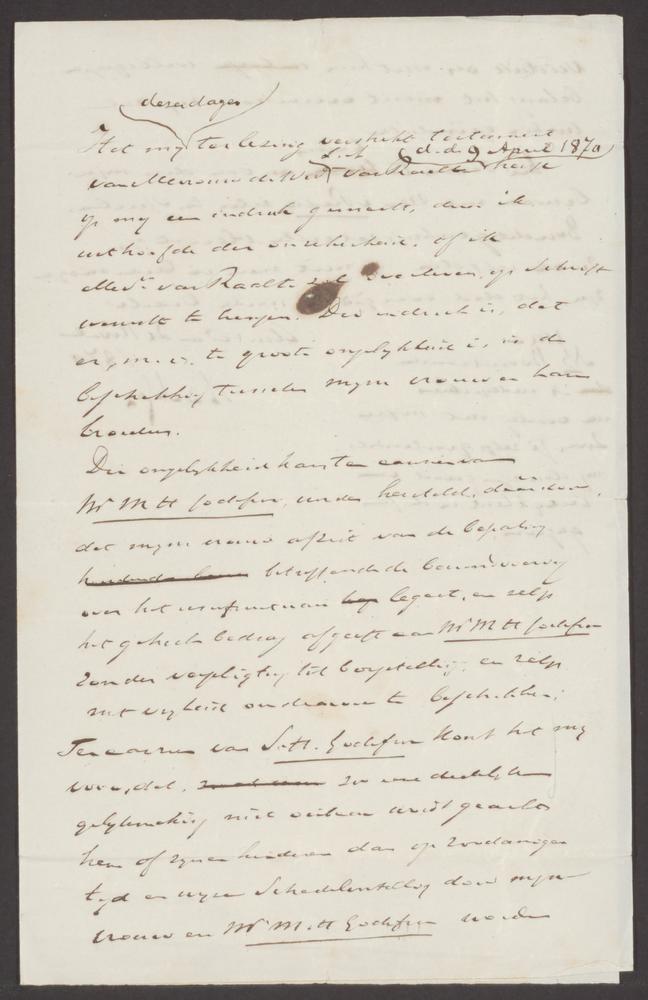 dezer dagen
Het mij ter lezing verstrekt testament
d.d. 9 April 1870
van Mevrouw de Wed. van Raalte heeft
op mij een indruk gemaakt, dien ik
uithoofde der onzekerheid, of ik
Mevr. van Raalte zal overleven, op schrift
wensch te brengen. Die indruk is, dat
er, m. i. te groote ongelijkheid is in de
beschikking tusschen mijne vrouw en hare
broeders.
Die ongelijkheid kan ten aanzien van
Mr M H Godefroi, worden hersteld, daardoor,
dat mijne vrouw afziet van de bepaling
betreffende de bewindvoering
over het usufruct van legaat, en zelfs
het geheele bedrag afgeeft aan Mr M H Godefroi
zonder verpligting tot borgstelling, en zelfs
met vrijheid om daarover te beschikken;
Ten aanzien van S. H. Godefroi komt het mij
voor, dat, zoodanige
gelijkmaking niet behoeft
hem of zijne kinderen dan op zoodanigen
tijd en wijze schadeloosstelling door mijne
vrouw en Mr M. H Godefroi worden